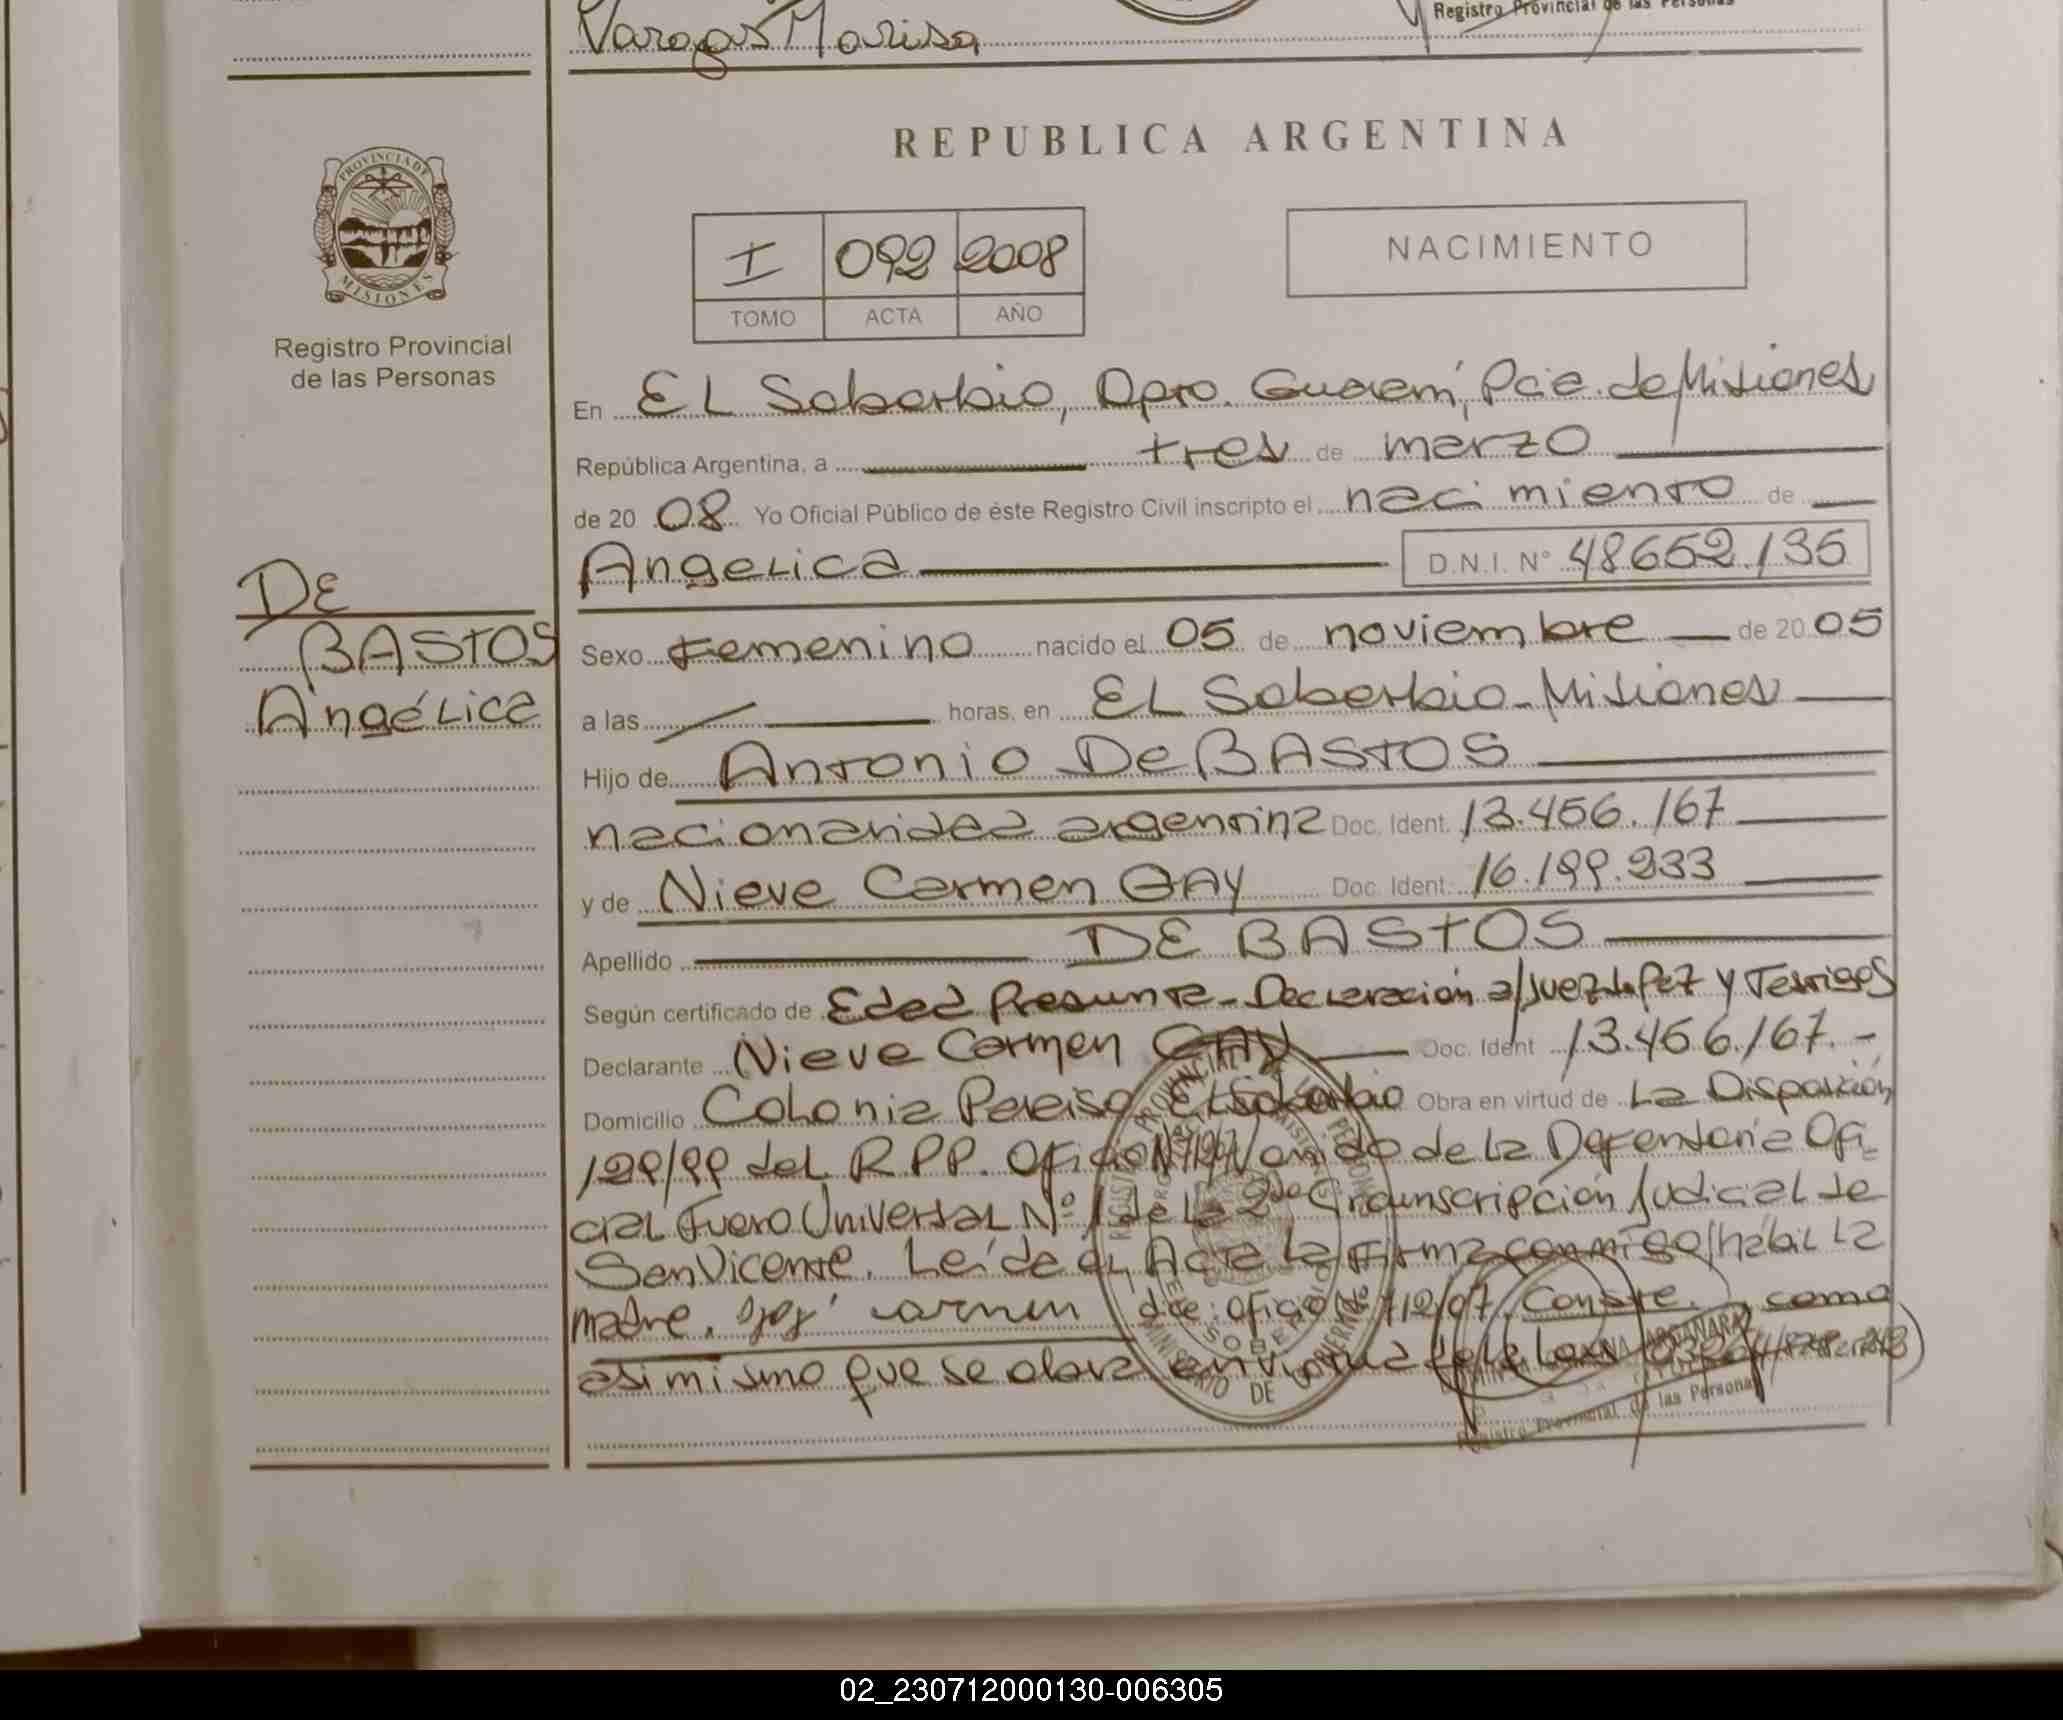 Vargas Marisa
Registro Provincial de las Personas
PROVINCIA DE
MISIONES
Registro Provincial
de las Personas
REPUBLICA ARGENTINA
I 092 2008
TOMO ACTA AÑO
NACIMIENTO
En EL Soberbio, Dpto. Guaraní, Pcia. de Misiones
República Argentina, a tres de marzo
de 20 08 Yo Oficial Público de éste Registro Civil inscripto el nacimiento de
Angelica D.N.I. N° 48652.135
DE
BASTOS
Angélica
Sexo Femenino nacido el 05 de noviembre de 20 05
a las horas, en EL Soberbio - Misiones
Hijo de Antonio De BASTOS
nacionalidad argentina Doc. Ident. 13.456.167
y de Nieve Carmen GAY Doc. Ident. 16.199.233
Apellido DE BASTOS
Según certificado de Edad Presunta - Declaración a/Juez de Paz y Testigos
Declarante Nieve Carmen GAY Doc. Ident 13.456.167.-
Domicilio Colonia Paraiso EL Soberbio Obra en virtud de La Disposición
129/99 del R.P.P. Oficio N° de la Defensoria Ofi
cial Fuero Universal N° 1 de la 2da Circunscripción Judicial de
San Vicente. Leída el Acta la firma conmigo/hábil la
madre. dice: oficio N° 712/07. Conste. como
asimismo que se obra en virtud de la Ley
Registro Provincial de las Personas
02_230712000130-006305